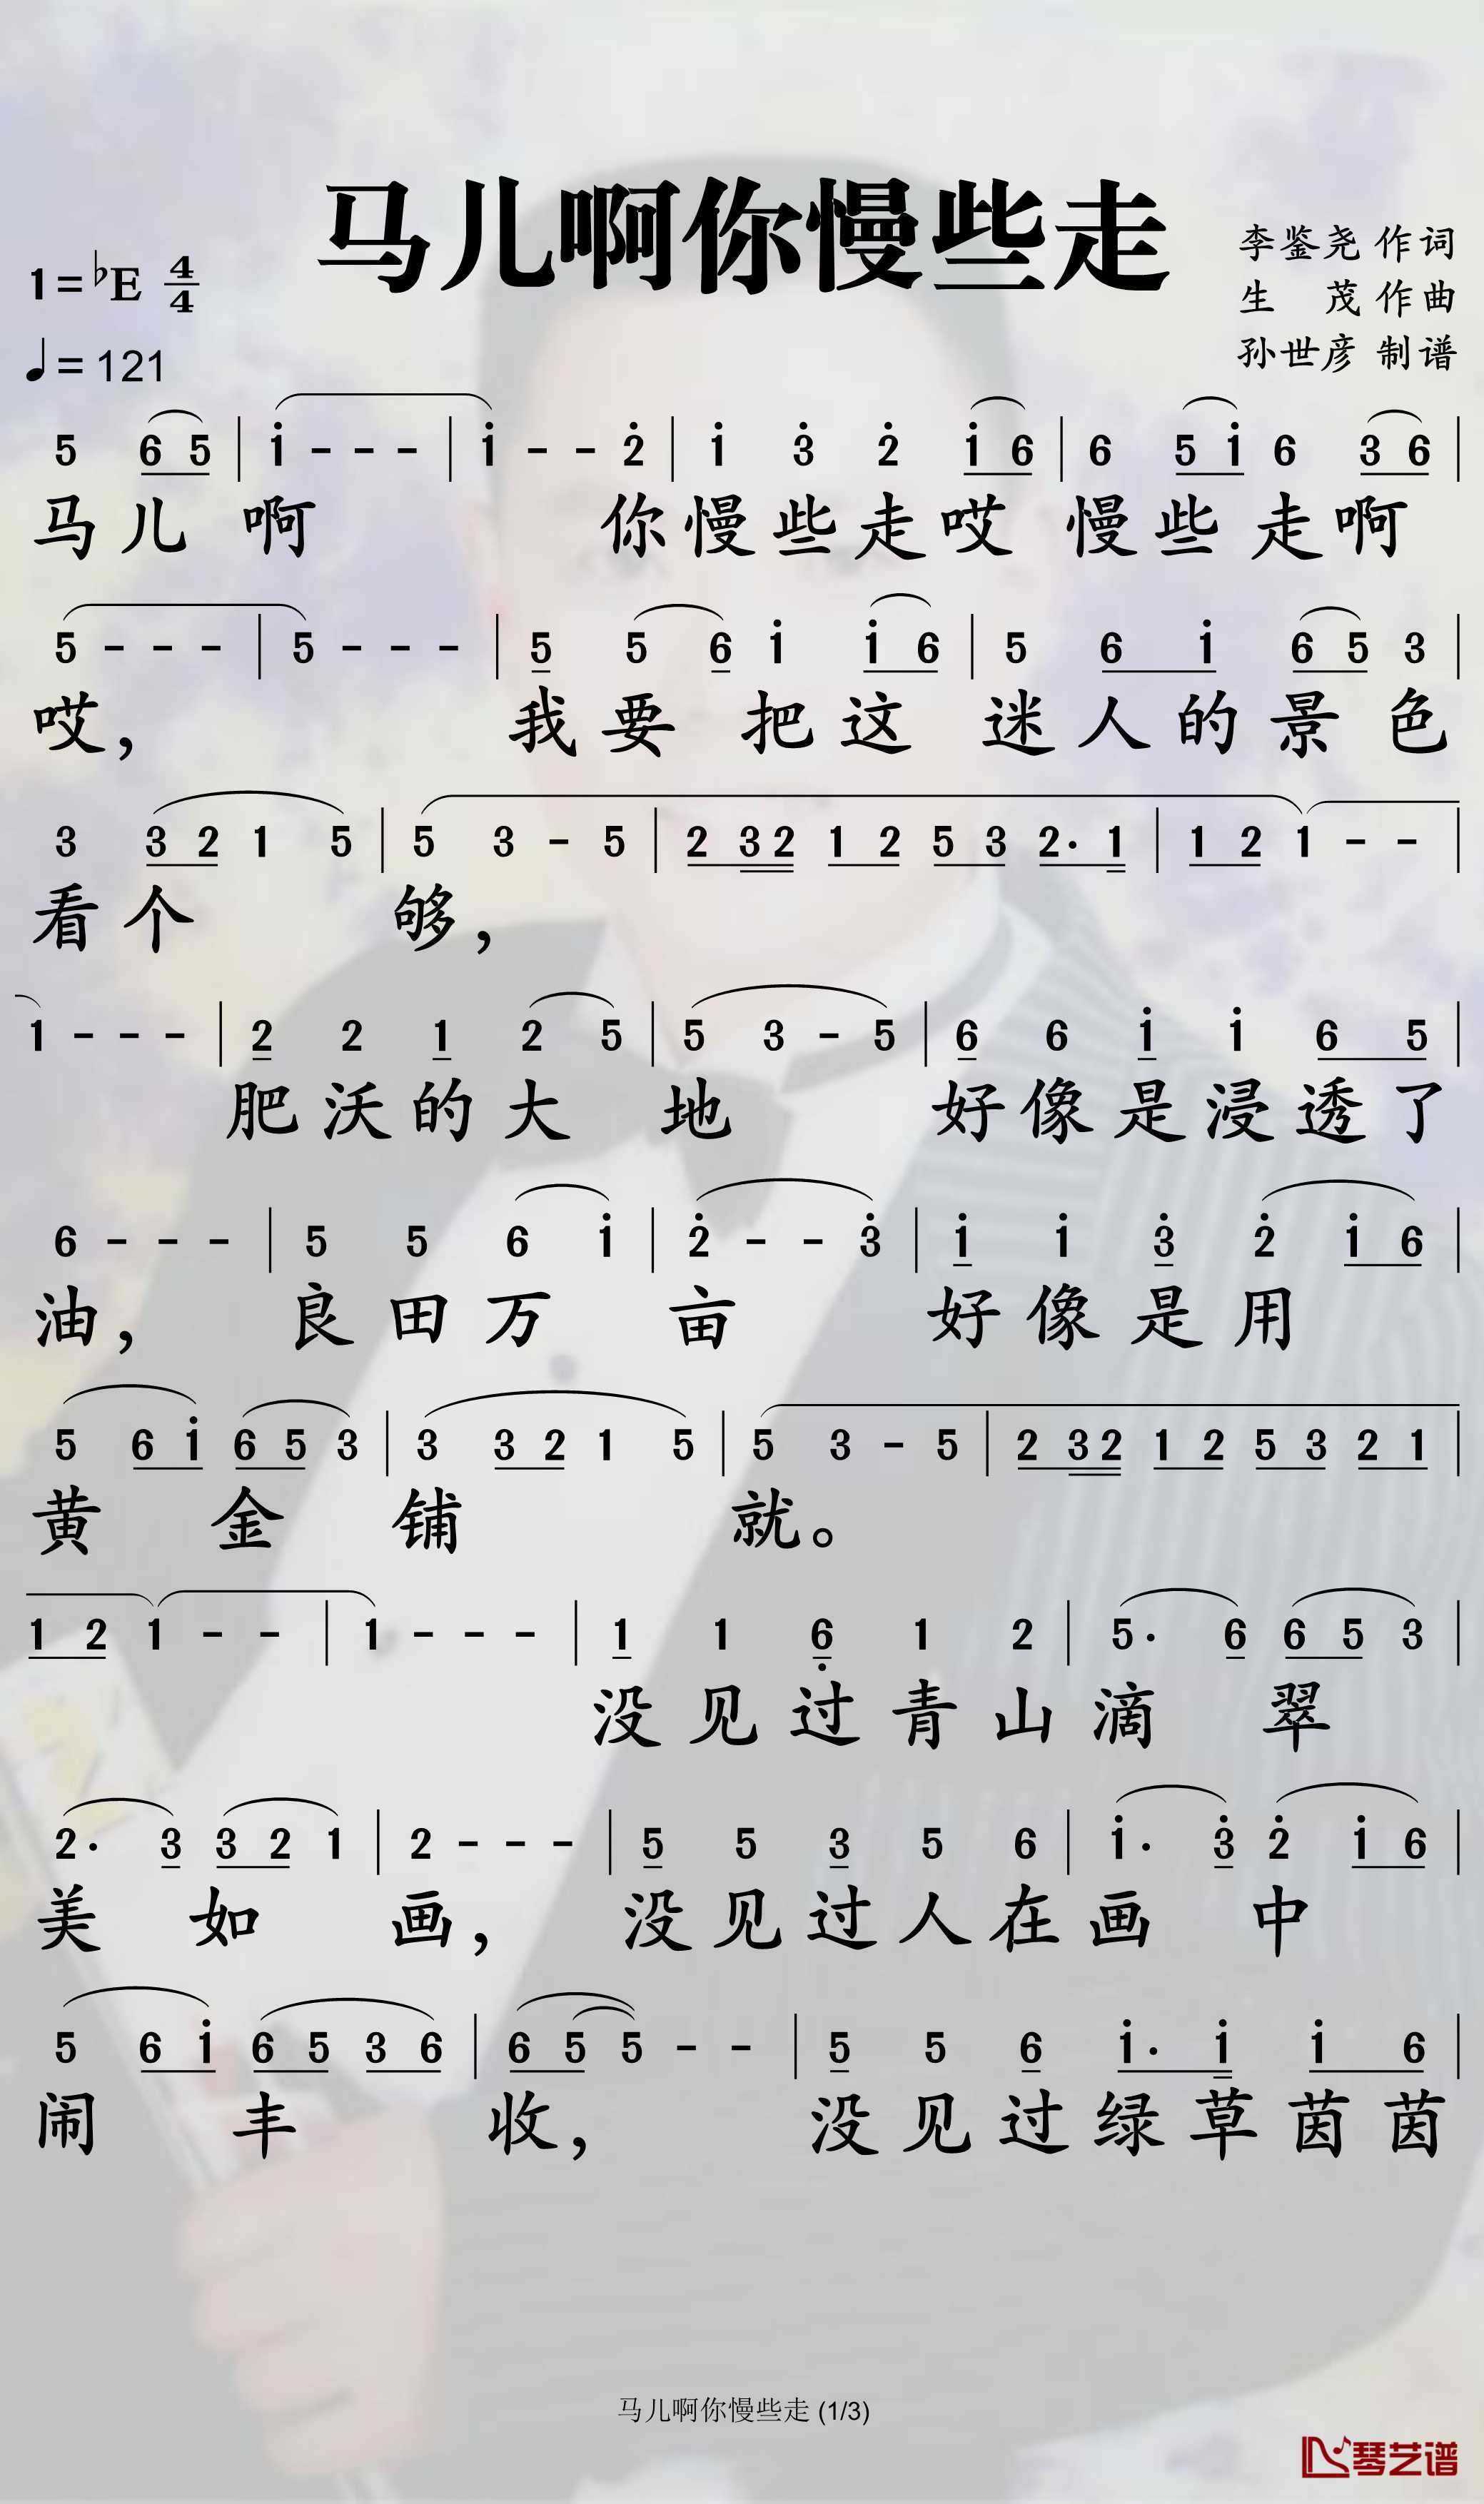 马儿啊你慢些走
李鉴尧 作词
生 茂 作曲
孙世彦 制谱
1=♭E 4/4
♩=121
5 6 5 | i - - - | i - - 2̇ | i 3̇ 2̇ i 6 | 6 5 i 6 3 6 |
马儿 啊 你慢些走哎 慢些 走啊
5 - - - | 5 - - - | 5 5 6 i i 6 | 5 6 i 6 5 3 |
哎, 我要 把这 迷人的景色
3 3 2 1 5 | 5 3 - 5 | 2 3 2 1 2 5 3 2· 1 | 1 2 1 - - |
看个 够,
1 - - - | 2 2 1 2 5 | 5 3 - 5 | 6 6 i i 6 5 |
肥沃的大 地 好像是浸透了
6 - - - | 5 5 6 i | 2̇ - - 3̇ | i i 3̇ 2̇ i 6 |
油, 良田万 亩 好像是用
5 6 i 6 5 3 | 3 3 2 1 5 | 5 3 - 5 | 2 3 2 1 2 5 3 2 1 |
黄 金 铺 就。
1 2 1 - - | 1 - - - | 1 1 6̣ 1 2 | 5· 6 6 5 3 |
没见过青山滴 翠
2· 3 3 2 1 | 2 - - - | 5 5 3 5 6 | i· 3̇ 2̇ i 6 |
美 如 画, 没见过人在画 中
5 6 i 6 5 3 6 | 6 5 5 - - | 5 5 6 i· i i 6 |
闹 丰 收, 没见过绿草茵茵
马儿啊你慢些走 (1/3)
琴艺谱